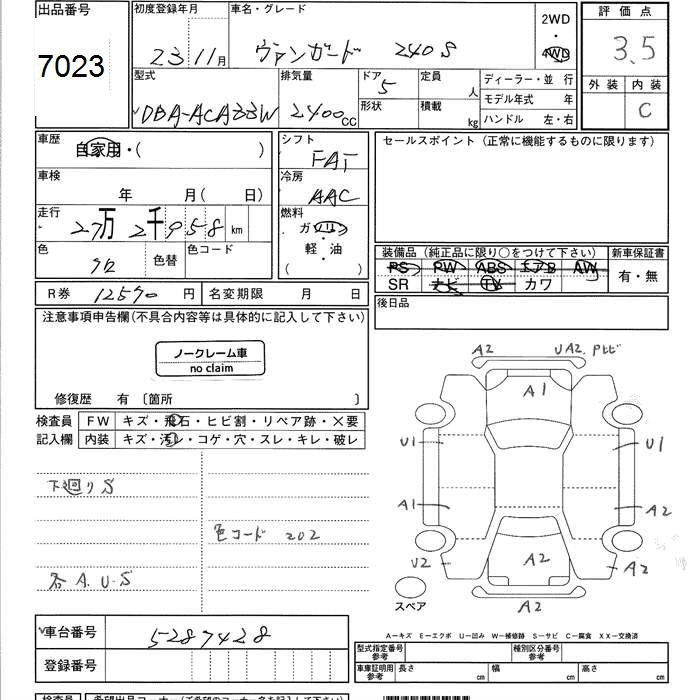 出品番号
7023
初度登録年月
23 11月
車名・グレード
ヴァンガード 240S
2WD
・
4WD
評価点
3.5
外装 内装
C
型式
DBA-ACA33W
排気量
2400cc
ドア
5
形状
定員
人
積載
kg
ディーラー・並 行
モデル年式 年
ハンドル 左・右
車歴
自家用・( )
車検
年 月( 日)
走行
27万 2千958 km
色
クロ
色替
色コード
シフト
FAT
冷房
AAC
燃料
ガソリン
軽・油
( )
セールスポイント(正常に機能するものに限ります)
装備品(純正品に限り○をつけて下さい)
PS PW ABS エアB AW
SR ナビ TV カワ
新車保証書
有・無
後日品
R券 12590 円
名変期限 月 日
注意事項申告欄(不具合内容等は具体的に記入して下さい)
ノークレーム車
no claim
修復歴 有 〔箇所 〕
検査員
記入欄
FW キズ・飛石・ヒビ割・リペア跡・×要
内装 キズ・汚レ・コゲ・穴・スレ・キレ・破レ
下廻りS
色コード 202
各A.U-S
A2
UA2. Pヒビ
A1
U1
U1
A1
A2
U2
A2
A2
A2
スペア
A-キズ E-エクボ U-凹み W-補修跡 S-サビ C-腐食 XX-交換済
車台番号
5287428
登録番号
型式指定番号
参考
種別区分番号
参考
車庫証明用
参考
長さ cm 幅 cm 高さ cm